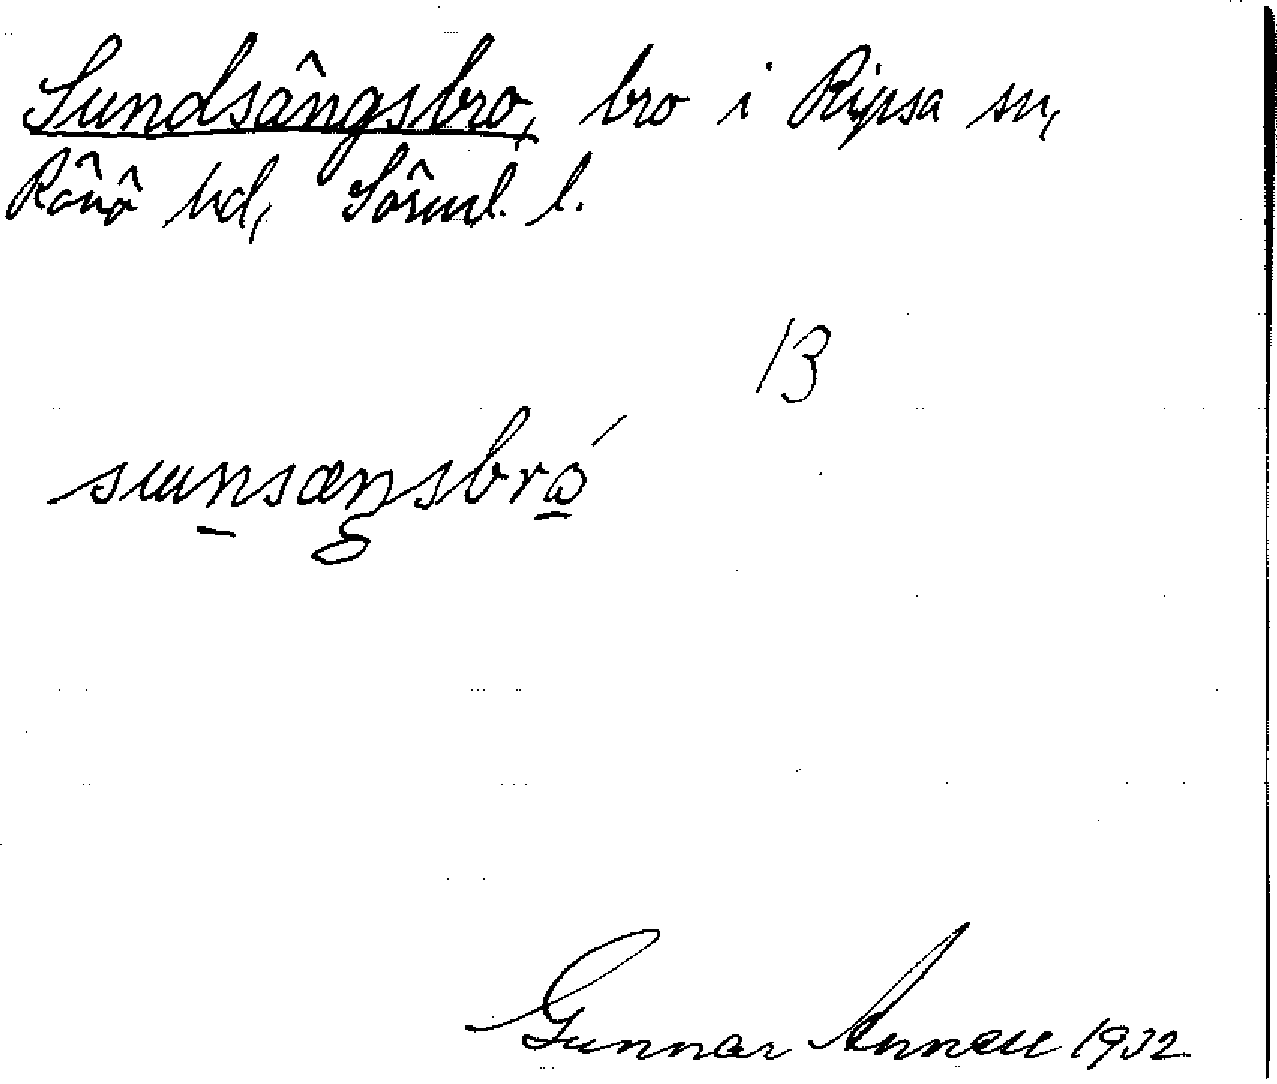 Sundsängsbro, bro i Ripsa sn,
Rönö hd, Sörml. l.
13
sunsæŋsbró
Gunnar Annell 1932